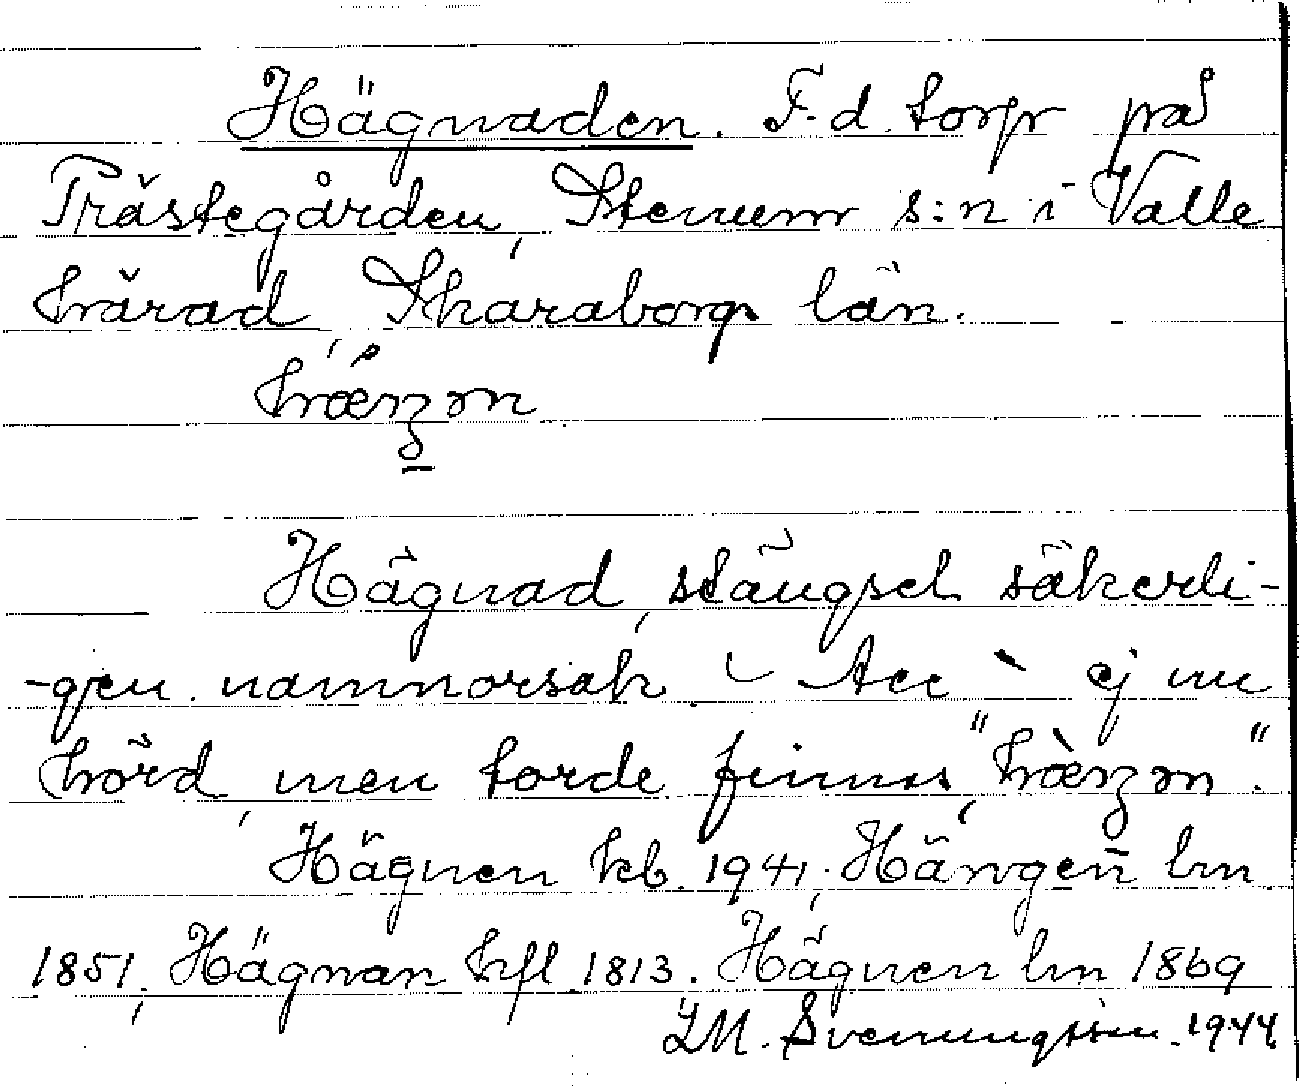 Hägnaden. F. d. torp på
Prästegården, Stenums s:n i Valle
härad, Skaraborgs län.
Hägnad, stängsel säkerli-
-gen namnorsak. Acc ` ej nu
hörd, men torde finnas,
Hägnen kb. 1941; Hängen hm
1851; Hägnan hfl 1813. Hägnen hm 1869
I.M. Svennungsson 1944.